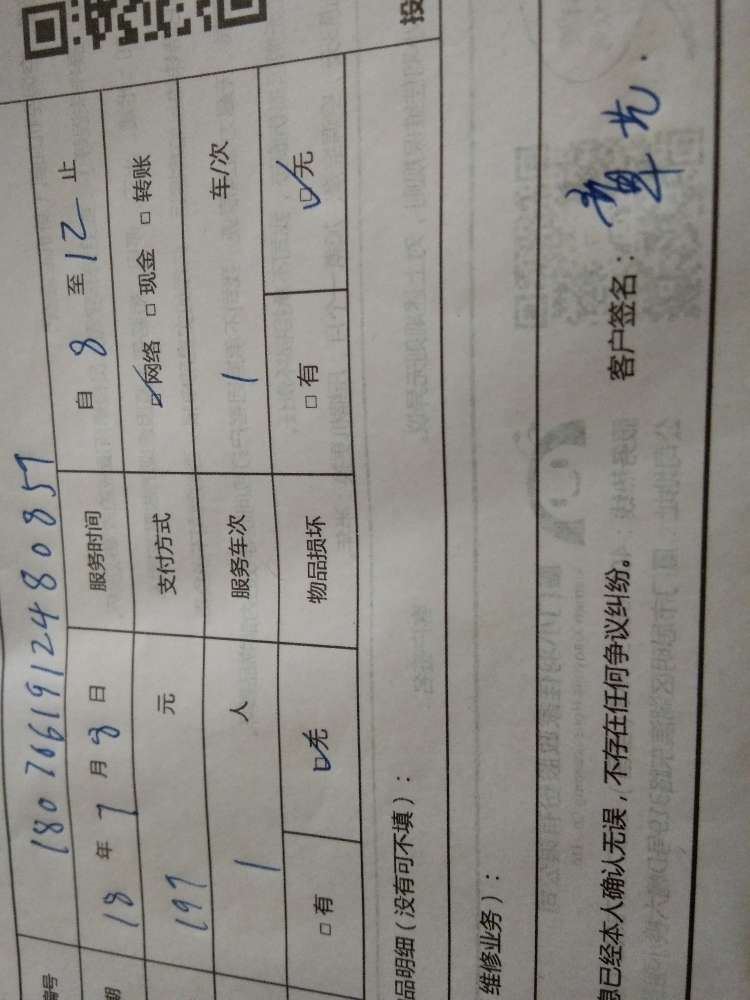 投
编号 18070661912480857
期 18 年 7 月 8 日 服务时间 自 8 至 12 止
197 元 支付方式 ☑网络 □现金 □转账
1 人 服务车次 1 车/次
□有 ☑无 物品损坏 □有 ☑无
品明细(没有可不填):
维修业务):
息已经本人确认无误,不存在任何争议纠纷。
客户签名: